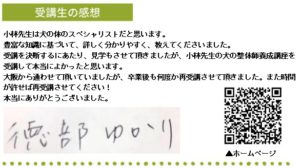 受講生の感想
小林先生は犬の体のスペシャリストだと思います。
豊富な知識に基づいて、詳しく分かりやすく、教えてくださいました。
受講を決断するにあたり、見学もさせて頂きましたが、小林先生の犬の整体師養成講座を
受講して本当によかったと思います。
大阪から通わせて頂いていましたが、卒業後も何度か再受講させて頂きました。また時間
が許せば再受講させてください！
本当にありがとうございました。
徳部 ゆかり
▲ホームページ